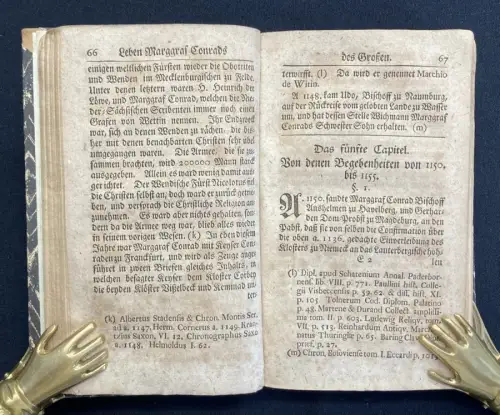 66 Leben Marggraf Conrads
einigen weltlichen Fürsten wieder die Obotriten
und Wenden im Mecklenburgischen zu Felde.
Unter denen letztern waren H. Heinrich der
Löwe, und Marggraf Conrad, welchen die Nie-
der-Sächsischen Scribenten immer noch einen
Grafen von Wettin nennen. Ihr Endzweck
war, sich an denen Wenden zu rächen, die bis-
her mit den benachbarten Christen sehr übel
umgegangen waren. Die Armee, die sie zu-
sammen brachten, wird 200000 Mann starck
ausgegeben. Allein es ward damit wenig aus-
gerichtet. Der Wendische Fürst Nicolotus fiel
die Christen selbst an, doch ward er zurück getrie-
ben, und versprach die Christliche Religion an-
zunehmen. Es ward aber nicht gehalten, son-
dern da die Armee weg war, blieb alles wieder
in seinem vorigen Wesen. (k) In eben diesem
Jahre war Marggraf Conrad mit Keyser Con-
raden zu Franckfurt, und wird als Zeuge ange-
führet in zween Briefen gleiches Inhalts, in
welchen besagter Keyser dem Kloster Corbey
die beyden Klöster Visbeck und Kemnad
(k) Albertus Stadensis & Chron. Montis Ser.
a. 1147. Herm. Cornerus a. 1149.
Saxon. VI. 12. Chronographus Saxo
a. 1148. Helmoldus I. 62.
des Großen. 67
terwirfft. (l) Da wird er genennet Marchio
de Witin.
A 1148. kam Udo, Bischoff zu Naumburg,
auf der Rückreise vom gelobten Lande zu Wasser
um, und hat dessen Stelle Wichmann Marggraf
Conrads Schwester Sohn erhalten. (m)
Das fünfte Capitel.
Von denen Begebenheiten von 1150.
bis 1155.
§. 1.
A. 1150. sandte Marggraf Conrad Bischoff
Anshelmen zu Havelberg, und Gerhar-
den Dom-Probst zu Magdeburg, an den
Pabst, daß sie von selben die Confirmation über
die oben a. 1136. gedachte Einverleibung des
Klosters zu Niemeck an das Lauterbergische hoh-
E 2 len
(l) Dipl. apud Schatenium Annal. Paderbor-
nens. lib. VIII. p. 771. Paullini hist. Colle-
gii Visbeccensis p. 59. 62. & diss. hist. XI.
p. 105 Tolnerum Cod. Diplom. Palatino
p. 48. Martene & Durand Collect. amplissi-
me tom. II. p. 603. Ludewig Reliqv. tom.
VII. p. 515. Reinhardum Antiqv. March.
natus Thuringiæ p. 65. Baring
prif. p. 27.
(m) Chron. Bosoviense tom I. Eccardi p. 1015.